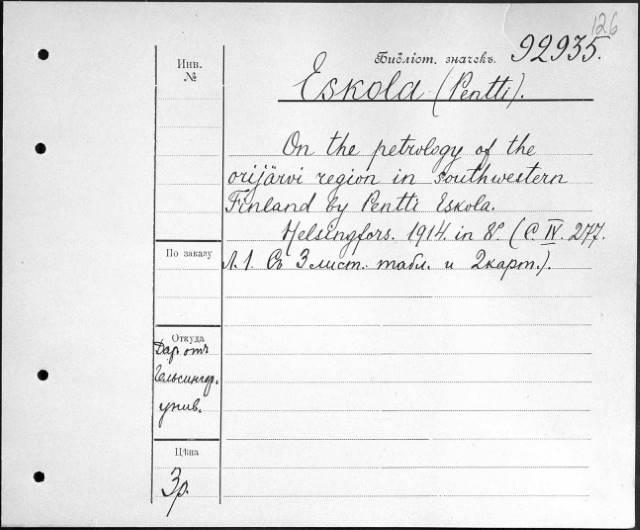 126
Инв.
№
Библіот. значекъ. 92935.
Eskola (Pentti).
On the petrology of the
orijärvi region in southwestern
Finland by Pentti Eskola.
Helsingfors. 1914. in 8°. (С. IV. 277.
Л. 1. Съ 3 лист. табл. и 2 карт.).
По заказу
Откуда
Дар отъ
Гельсингф.
унив.
Цѣна
3р.